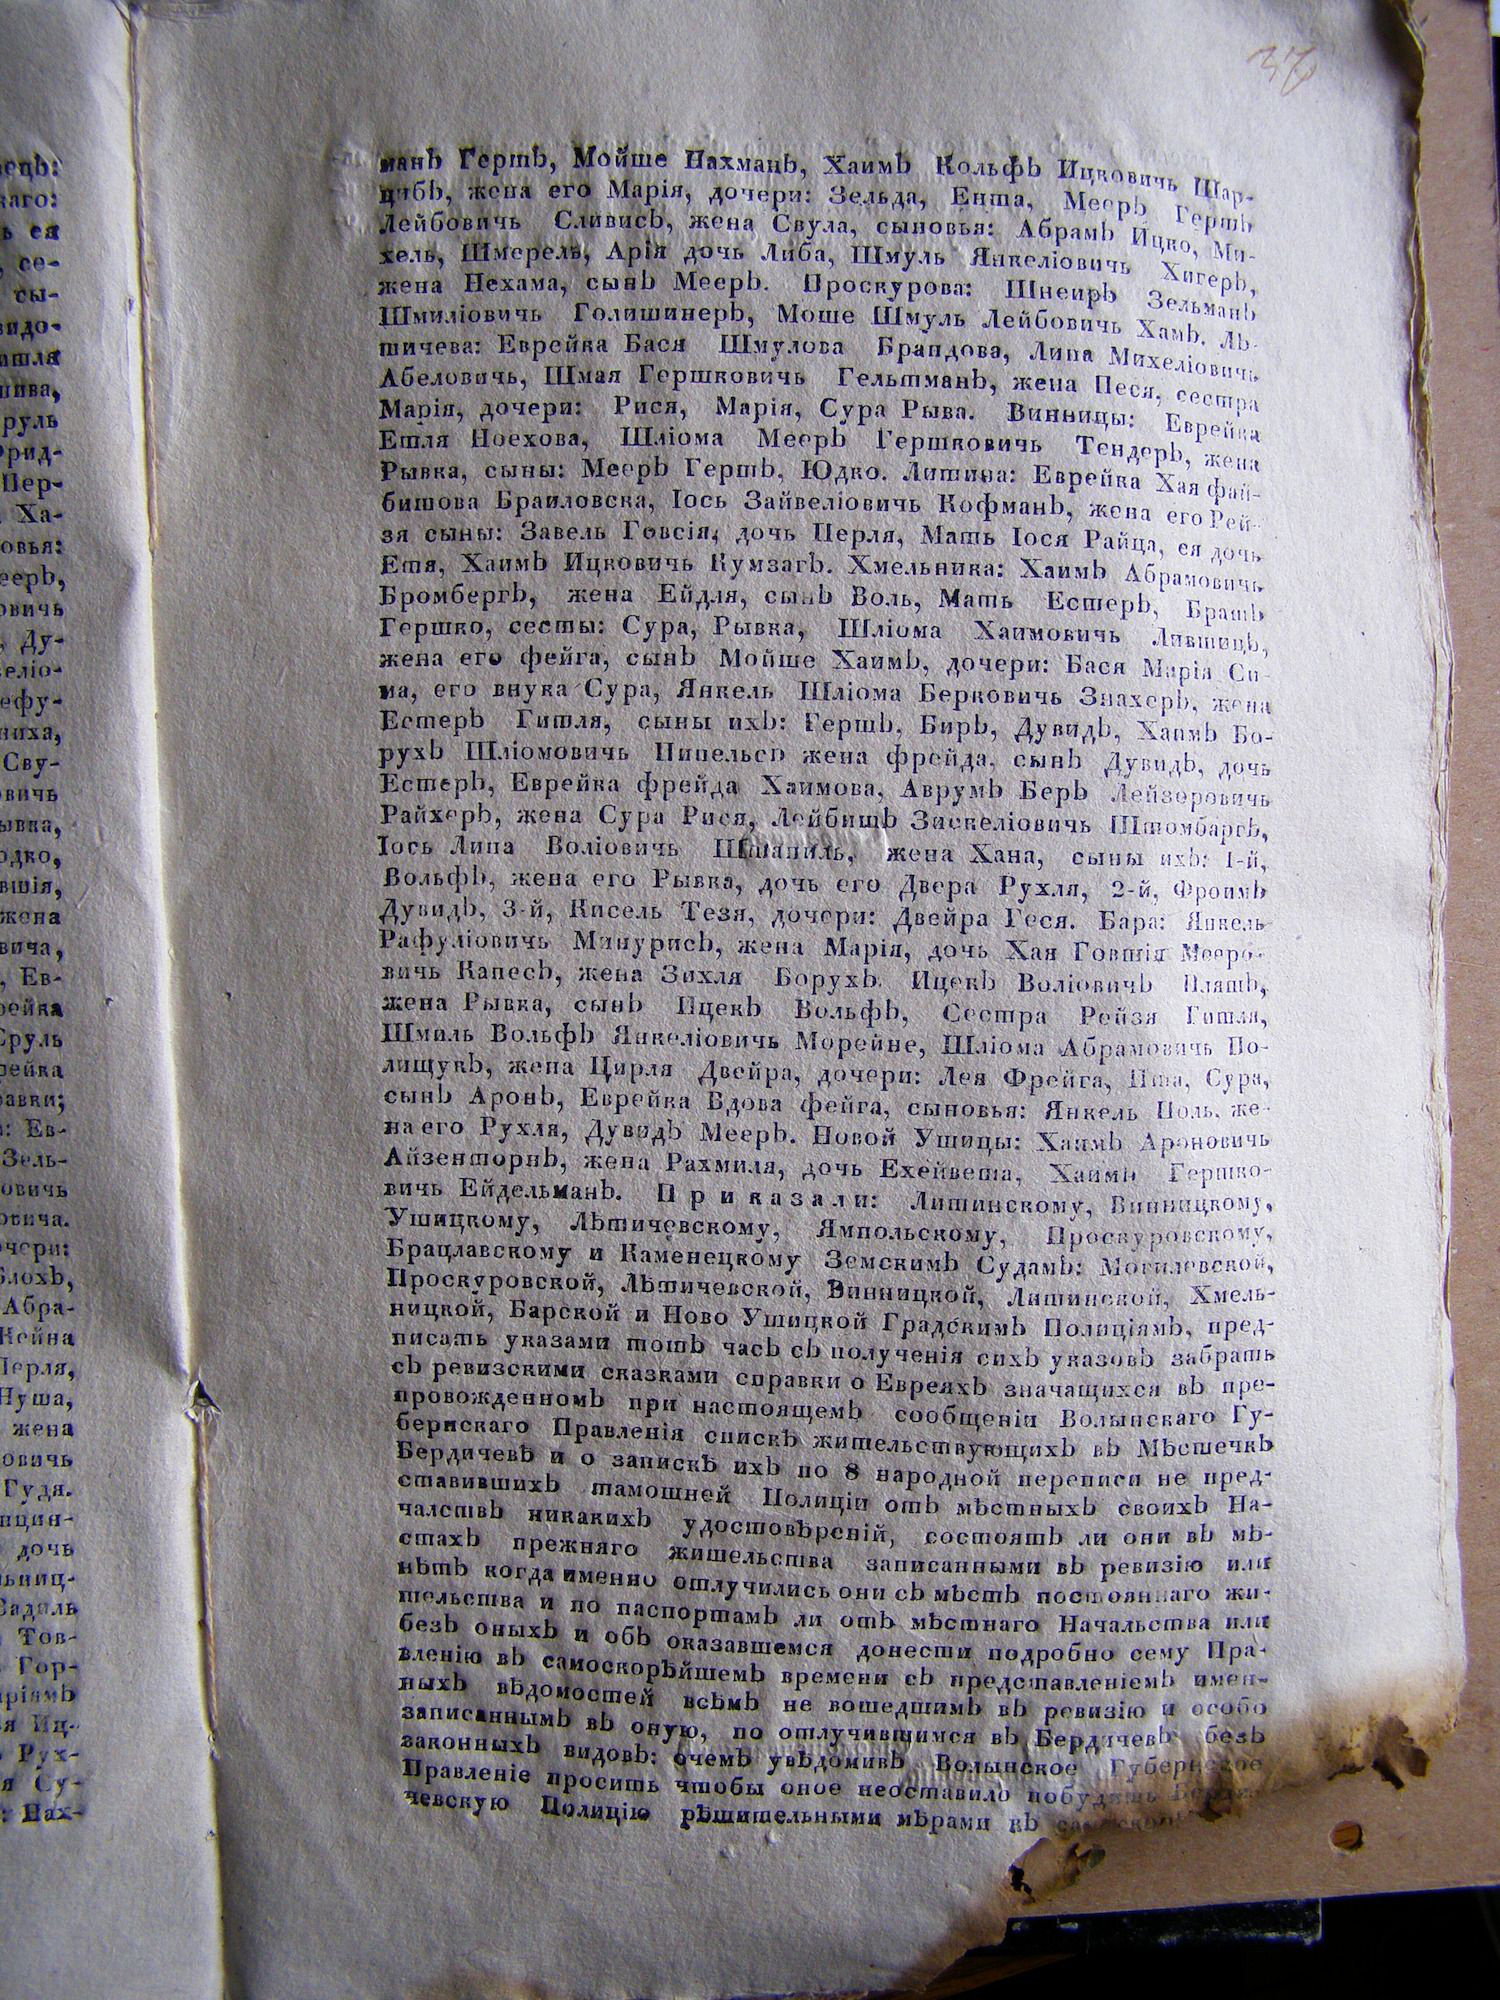 37
манъ Гершъ, Мойше Нахманъ, Хаимъ Кольфъ Ицковичь Шар-
цибъ, жена его Марія, дочери: Зельда, Ента, Мееръ Гершъ
Лейбовичь Сливисъ, жена Свула, сыновья: Абрамъ Ицко, Ми-
хель, Шмерель, Арія дочь Либа, Шмуль Янкеліовичь Хигеръ,
жена Нехама, сынъ Мееръ. Проскурова: Шнеиръ Зельманъ
Шмиліовичь Голишинеръ, Моше Шмуль Лейбовичь Хамъ. Лѣ-
тичева: Еврейка Бася Шмулова Брандова, Липа Михеліовичь
Абеловичь, Шмая Гершковичь Гельтманъ, жена Песя, сестра
Марія, дочери: Рися, Марія, Сура Рыва. Винницы: Еврейка
Етля Ноехова, Шліома Мееръ Гершковичь Тендеръ, жена
Рывка, сыны: Мееръ Гершъ, Юдко. Литина: Еврейка Хая фай-
бишова Браиловска, Іось Зайвеліовичь Кофманъ, жена его Рей-
зя сыны: Завель Говсія, дочь Перля, Мать Іося Райца, ея дочь
Етя, Хаимъ Ицковичь Кумзагъ. Хмельника: Хаимъ Абрамовичь
Бромбергъ, жена Ейдля, сынъ Воль, Мать Естеръ, Братъ
Гершко, сесты: Сура, Рывка, Шліома Хаимовичь Лившицъ,
жена его фейга, сынъ Мойше Хаимъ, дочери: Бася Марія Си-
ма, его внука Сура, Янкель Шліома Берковичь Знахеръ, жена
Естеръ Гитля, сыны ихъ: Гершъ, Биръ, Дувидъ, Хаимъ Бо-
рухъ Шліомовичь Пипельсъ жена фрейда, сынъ Дувидъ, дочь
Естеръ, Еврейка фрейда Хаимова, Аврумъ Беръ Лейзеровичь
Райхеръ, жена Сура Рися, Лейбишъ Зискеліовичь Штомбаргъ,
Іось Липа Воліовичь Шпаниль, жена Хана, сыны ихъ: 1-й,
Вольфъ, жена его Рывка, дочь его Двера Рухля, 2-й, Фроимъ
Дувидъ, 3-й, Кисель Тезя, дочери: Двейра Геся. Бара: Янкель
Рафуліовичь Минурисъ, жена Марія, дочь Хая Говшія Мееро-
вичь Капесъ, жена Зихля Борухъ. Ицекъ Воліовичъ Плятъ,
жена Рывка, сынъ Ицекъ Вольфъ, Сестра Рейзя Гитля,
Шмиль Вольфъ Янкеліовичь Морейне, Шліома Абрамовичь По-
лищукъ, жена Цирля Двейра, дочери: Лея Фрейга, Ита, Сура,
сынъ Аронъ, Еврейка Вдова фейга, сыновья: Янкель Поль, же-
на его Рухля, Дувидъ Мееръ. Новой Ушицы: Хаимъ Ароновичь
Айзенторнъ, жена Рахмиля, дочь Ехейвета, Хаимъ Гершко-
вичь Ейдельманъ. Приказали: Литинскому, Винницкому,
Ушицкому, Лѣтичевскому, Ямпольскому, Проскуровскому,
Брацлавскому и Каменецкому Земскимъ Судамъ: Могилевской,
Проскуровской, Лѣтичевской, Винницкой, Литинской, Хмель-
ницкой, Барской и Ново Ушицкой Градскимъ Полиціямъ, пред-
писать указами тотъ часъ съ полученія сихъ указовъ забрать
съ ревизскими сказками справки о Евреяхъ значащихся въ пре-
провожденномъ при настоящемъ сообщеніи Волынскаго Гу-
бернскаго Правленія спискѣ жительствующихъ въ Мѣстечкѣ
Бердичевѣ и о запискѣ ихъ по 8 народной переписи не пред-
ставившихъ тамошней Полиціи отъ мѣстныхъ своихъ На-
чалствъ никакихъ удостовѣреній, состоятъ ли они въ мѣ-
стахъ прежняго жительства записанными въ ревизію или
нѣтъ когда именно отлучились они съ мѣстъ постояннаго жи-
тельства и по паспортамъ ли отъ мѣстнаго Начальства или
безъ оныхъ и объ оказавшемся донести подробно сему Пра-
вленію въ самоскорѣйшемъ времени съ представленіемъ имен-
ныхъ вѣдомостей всѣмъ не вошедшимъ въ ревизію и особо
записаннымъ въ оную, по отлучившимся въ Бердичевъ безъ
законныхъ видовъ: очемъ увѣдомивъ Волынское Губернское
Правленіе просить чтобы оное неоставило побудить Берди-
чевскую Полицію рѣшительными мѣрами къ